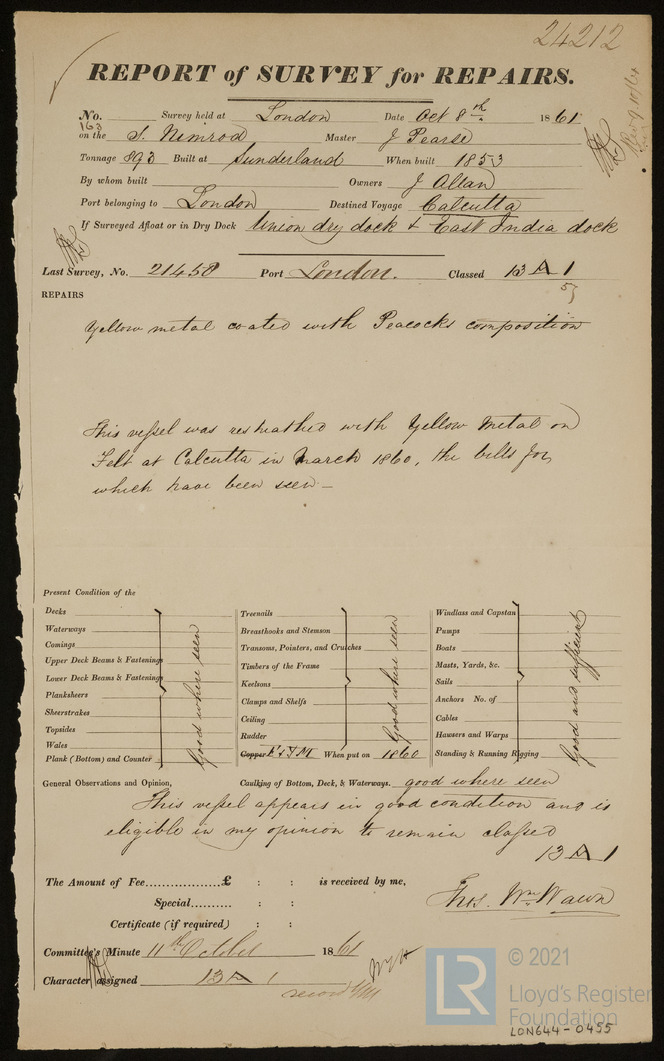 24212
REPORT of SURVEY for REPAIRS.
No. 163 Survey held at London Date Oct 8th 1861
on the S. Nimrod Master J Pearse
Tonnage 893 Built at Sunderland When built 1853
By whom built Owners J Allan
Port belonging to London Destined Voyage Calcutta
If Surveyed Afloat or in Dry Dock Union dry dock & East India dock
Last Survey, No. 21458 Port London. Classed 13 A 1
REPAIRS
Yellow metal coated with Peacocks composition
This vessel was resheathed with Yellow Metal on
Felt at Calcutta in March 1860, the bills for
which have been seen—
Present Condition of the
Decks
Waterways
Comings
Upper Deck Beams & Fastenings
Lower Deck Beams & Fastenings
Planksheers
Sheerstrakes
Topsides
Wales
Plank (Bottom) and Counter
Good where seen
Treenails
Breasthooks and Stemson
Transoms, Pointers, and Crutches
Timbers of the Frame
Keelsons
Clamps and Shelfs
Ceiling
Rudder
Good where seen
Copper F & Y M When put on 1860
Windlass and Capstan
Pumps
Boats
Masts, Yards, &c.
Sails
Anchors No. of
Cables
Hawsers and Warps
Standing & Running Rigging
Good and sufficient
General Observations and Opinion, Caulking of Bottom, Deck, & Waterways. good where seen
This vessel appears in good condition and is
eligible in my opinion to remain classed
13 A 1
The Amount of Fee................£ : : is received by me,
Special.......... : :
Certificate (if required) : :
Thos. Wm. Wawn
Committee's Minute 11th October 1861
Character assigned 13 A 1
© 2021
LR
Lloyd's Register
Foundation
LON644-0455